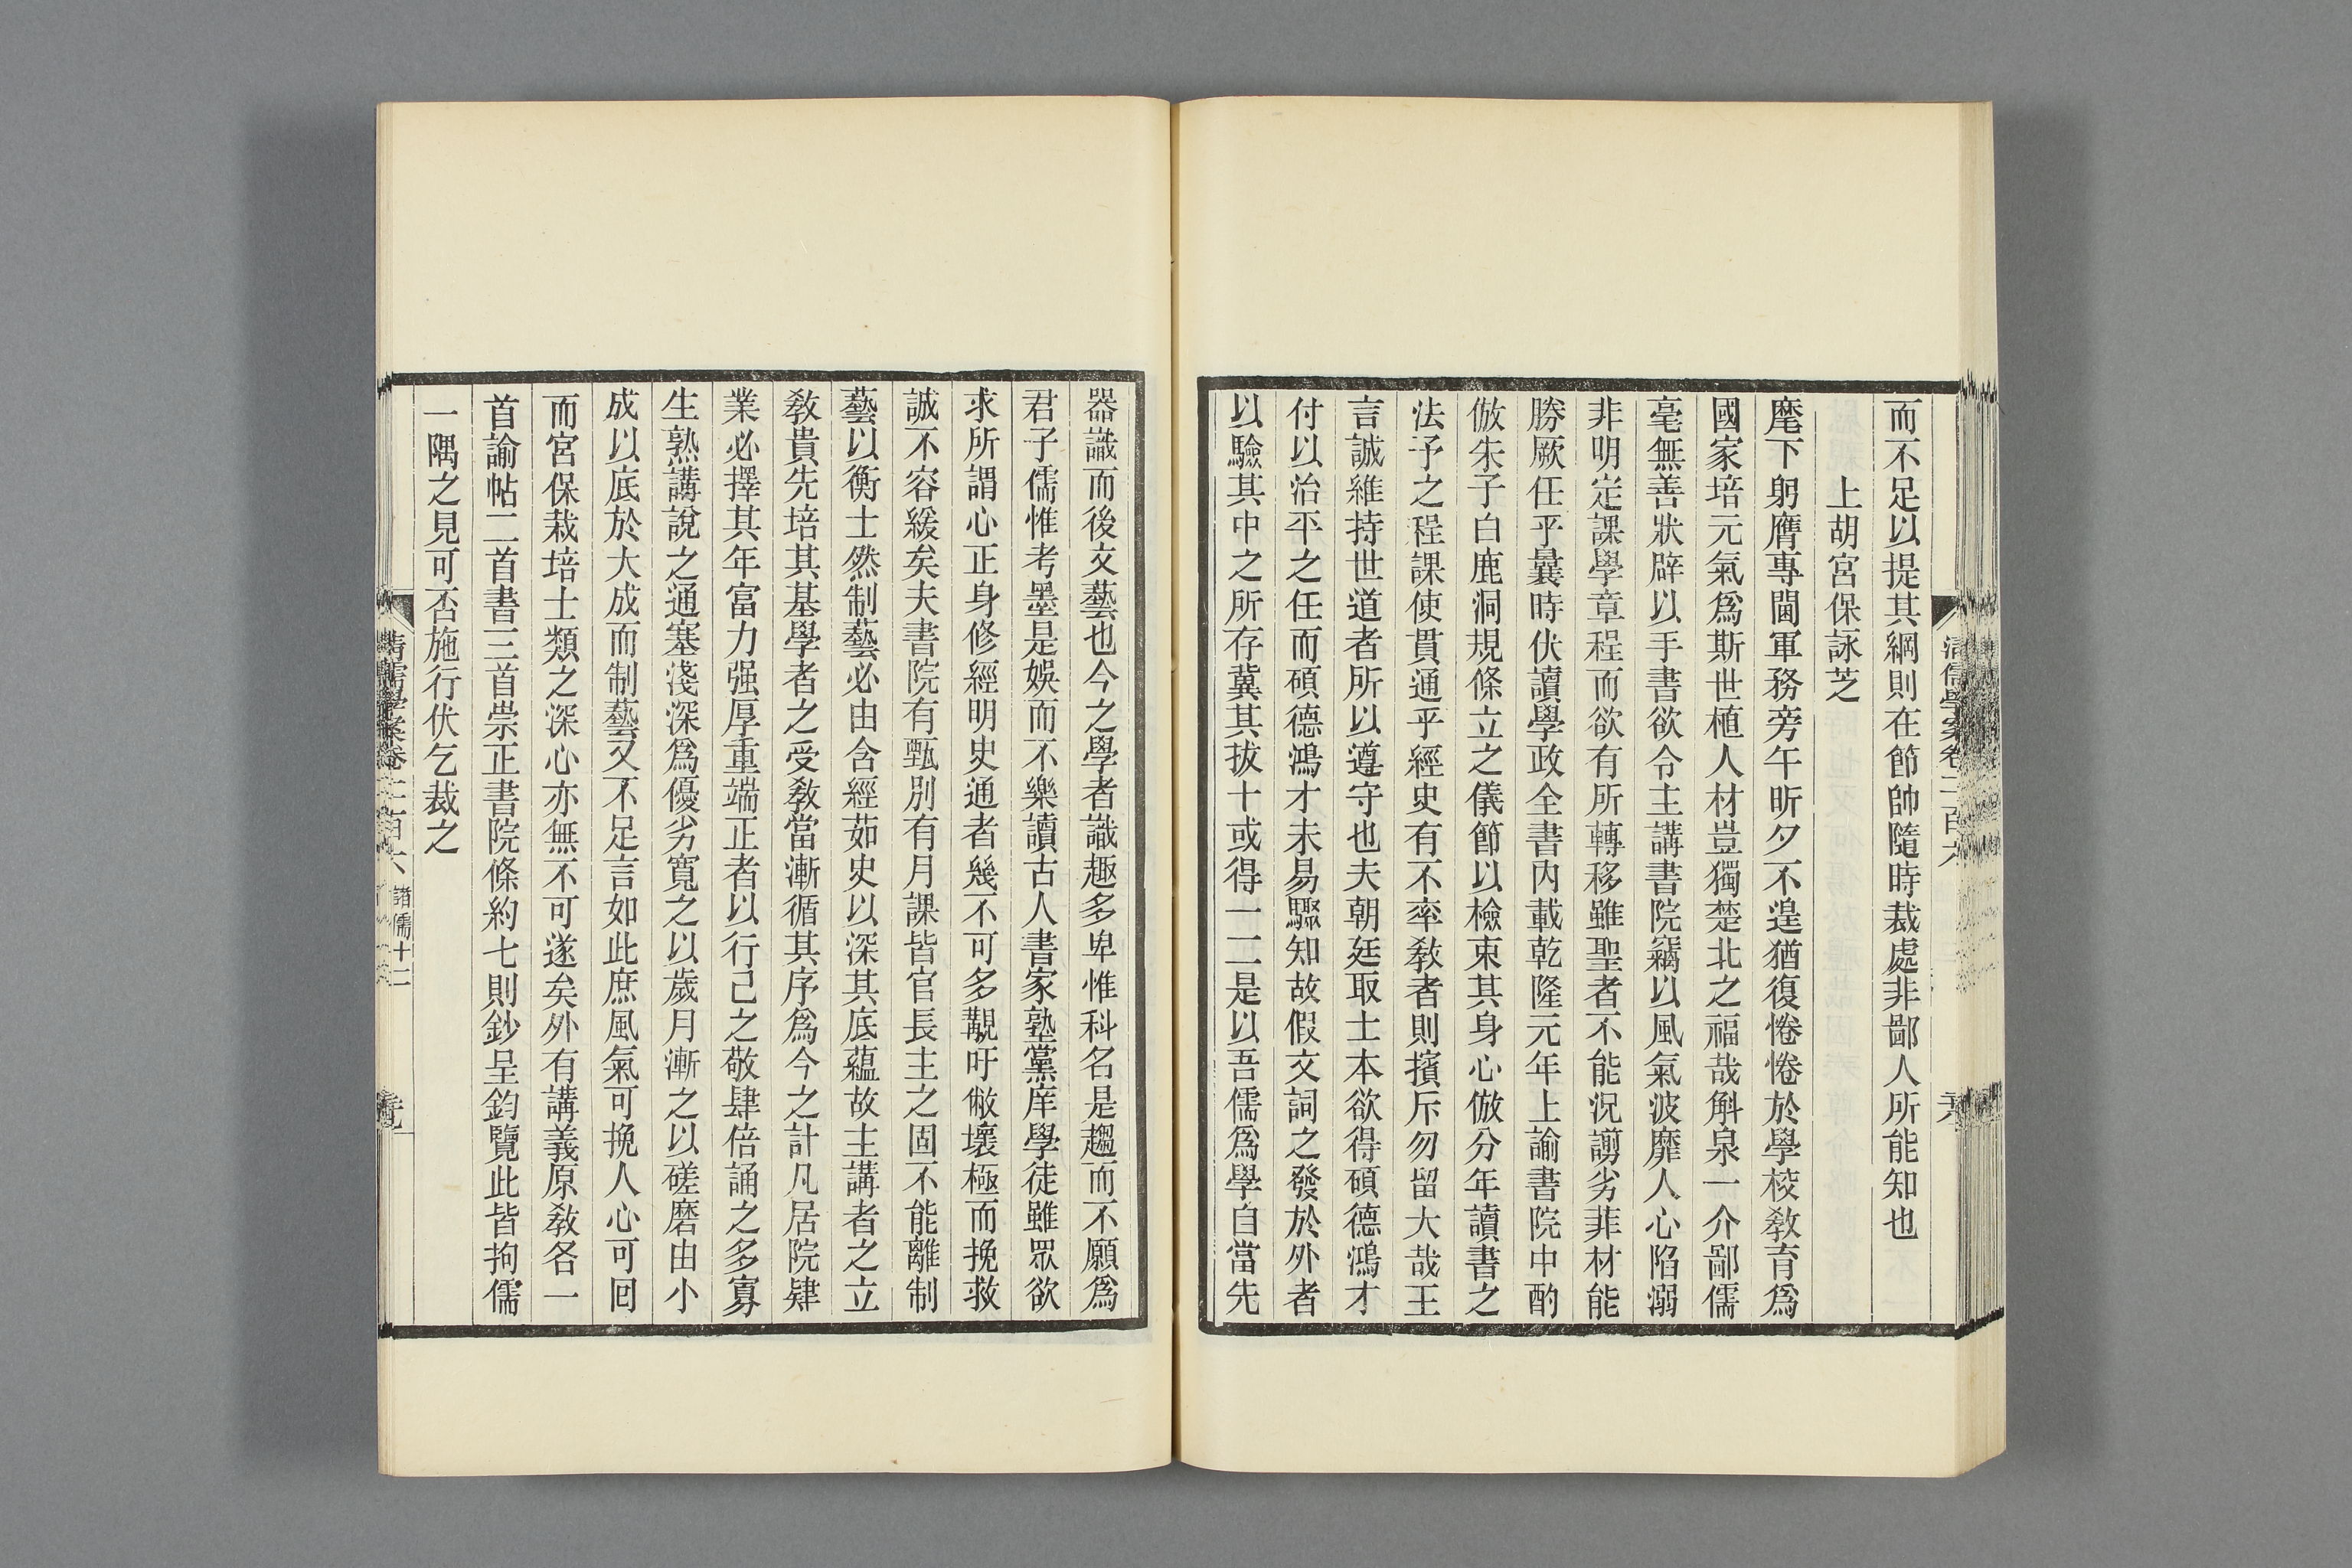 而不足以提其綱則在節帥隨時裁處非鄙人所能知也
上胡宮保詠芝
麾下躬膺專閫軍務旁午昕夕不遑猶復惓惓於學校教育爲
國家培元氣爲斯世植人材豈獨楚北之福哉斛泉一介鄙儒
毫無善狀辟以手書欲令主講書院竊以風氣波靡人心陷溺
非明定課學章程而欲有所轉移雖聖者不能況謭劣菲材能
勝厥任乎曩時伏讀學政全書內載乾隆元年上諭書院中酌
倣朱子白鹿洞規條立之儀節以檢束其身心倣分年讀書之
法予之程課使貫通乎經史有不率教者則擯斥勿留大哉王
言誠維持世道者所以遵守也夫朝廷取士本欲得碩德鴻才
付以治平之任而碩德鴻才未易驟知故假文詞之發於外者
以驗其中之所存冀其拔十或得一二是以吾儒爲學自當先
清儒學案卷二百六
器識而後文藝也今之學者識趣多卑惟科名是趨而不願爲
君子儒惟考墨是娛而不樂讀古人書家塾黨庠學徒雖眾欲
求所謂心正身修經明史通者幾不可多覯吁敝壞極而挽救
誠不容緩矣夫書院有甄別有月課皆官長主之固不能離制
藝以衡士然制藝必由含經茹史以深其底蘊故主講者之立
教貴先培其基學者之受教當漸循其序爲今之計凡居院肄
業必擇其年富力强厚重端正者以行己之敬肆倍誦之多寡
生熟講說之通塞淺深爲優劣寬之以歲月漸之以磋磨由小
成以底於大成而制藝又不足言如此庶風氣可挽人心可囘
而宮保栽培士類之深心亦無不可遂矣外有講義原教各一
首諭帖二首書三首崇正書院條約七則鈔呈鈞覽此皆拘儒
一隅之見可否施行伏乞裁之
清儒學案卷二百六 諸儒十二